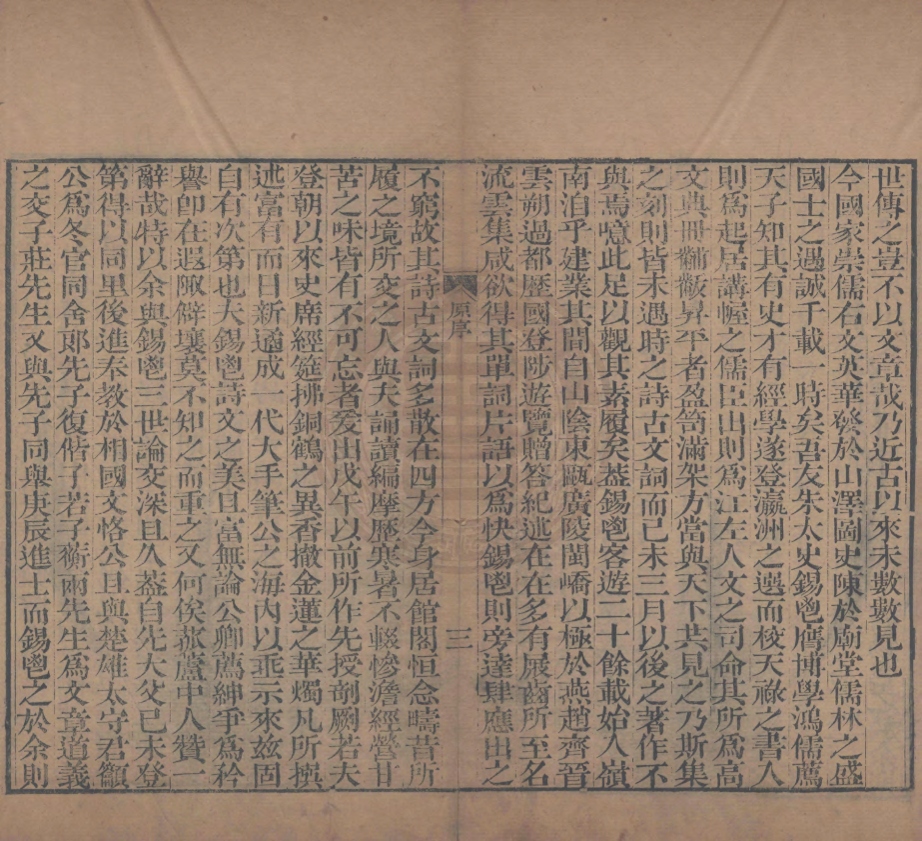 世傳之豈不以文章哉乃近古以來未數數見也
今國家崇儒右文英華發於山澤圖史陳於廟堂儒林之盛
國士之遇誠千載一時矣吾友朱太史錫鬯膺博學鴻儒薦
天子知其有史才有經學遂登瀛洲之選而校天祿之書入
則爲起居講幄之儒臣出則爲江左人文之司命其所爲高
文典冊黼黻昇平者盈笥滿架方當與天下共見之乃斯集
之刻則皆未遇時之詩古文詞而己未三月以後之著作不
與焉噫此足以觀其素履矣葢錫鬯客遊二十餘載始入嶺
南洎乎建業其間自山陰東甌廣陵閩嶠以極於燕趙齊晉
雲朔過都歷國登陟遊覽贈答紀述在在多有屐齒所至名
流雲集咸欲得其單詞片語以爲快錫鬯則旁達肆應出之
原序
三
不窮故其詩古文詞多散在四方今身居館閣恒念疇昔所
履之境所交之人與夫誦讀編摩歷寒暑不輟慘澹經營甘
苦之味皆有不可忘者爰出戊午以前所作先授剞劂若夫
登朝以來史席經筵拂銅鶴之異香撤金蓮之華燭凡所撰
述富有而日新適成一代大手筆公之海內以垂示來玆固
自有次第也夫錫鬯詩文之美且富無論公卿薦紳爭爲衿
譽卽在遐陬僻壤莫不知之而重之又何俟菰蘆中人贊一
辭哉特以余與錫鬯三世論交深且久葢自先大父己未登
第得以同里後進奉教於相國文恪公且與楚雄太守君籲
公爲冬官同舍郎先子復偕子若子蘅兩先生爲文章道義
之交子莊先生又與先子同與庚辰進士而錫鬯之於余則